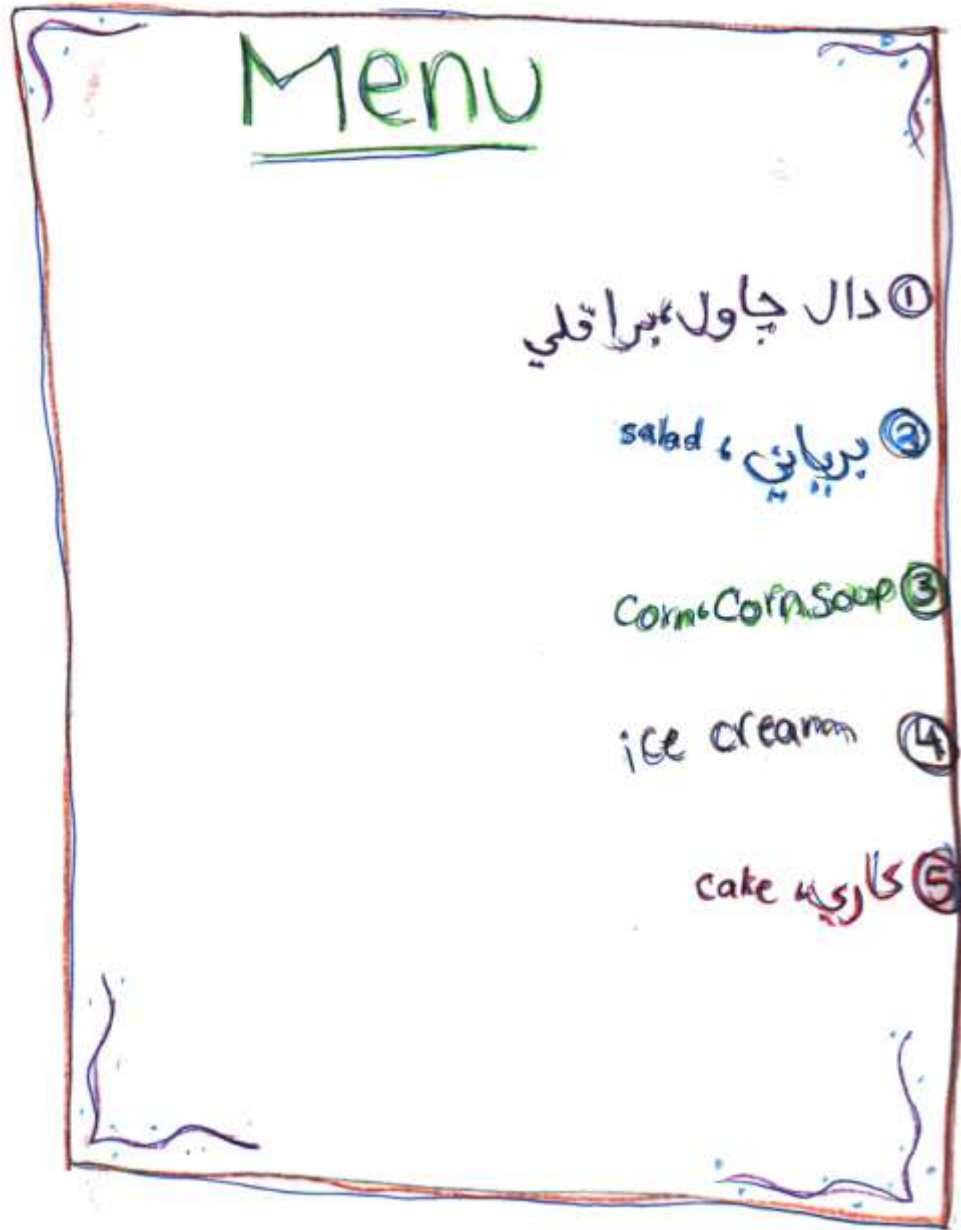 Menu
① دال چاول،
② برياني، salad
③ Corn، Corn soup
④ ice cream
⑤ كاري، cake